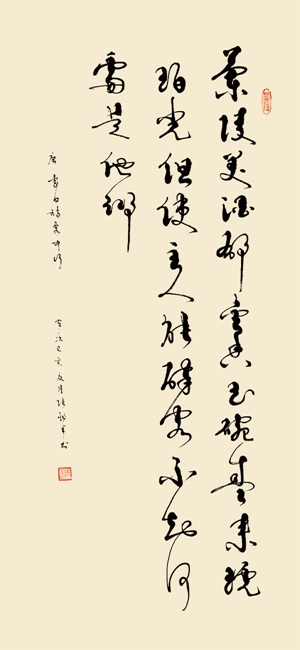 蘭陵美酒郁金香玉碗盛来琥
珀光但使主人能醉客不知何
處是他鄉
唐李白詩客中行
歲次己亥夏月張軍书